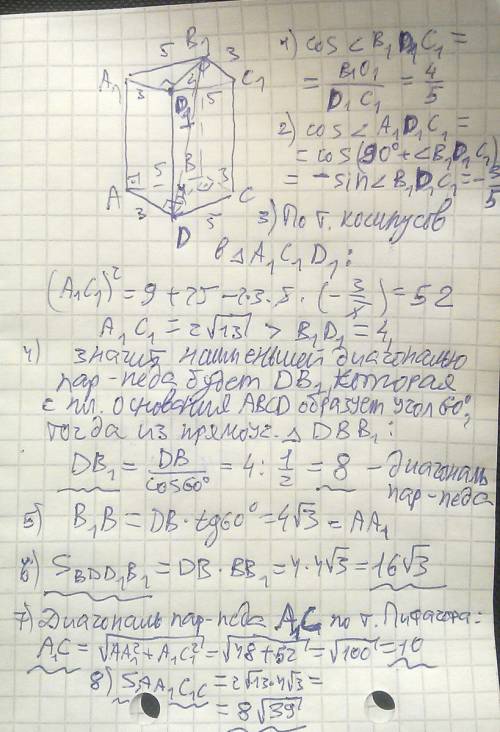 B₁
5
3
A₁
C₁
3
4
5
D₁
5
B
3
A
C
3
5
D
1) cos < B₁D₁C₁ =
= B₁C₁ / D₁C₁ = 4/5
2) cos < A₁D₁C₁ =
= cos(90° + <B₁D₁C₁)
= -sin<B₁D₁C₁ = -3/5
3) По т. косинусов
в △ A₁C₁D₁:
(A₁C₁)² = 9 + 25 - 2·3·5·(-3/5) = 52
A₁C₁ = 2√13 > B₁D₁ = 4,
4) значит, наименьшей диагональю
пар-педа будет DB₁, которая
с пл. основания ABCD образует угол 60°,
тогда из прямоуг. △ DBB₁:
DB₁ = DB / cos60° = 4 : 1/2 = 8 - диагональ
пар-педа
5) B₁B = DB·tg60° = 4√3 = AA₁
6) S BDD₁B₁ = DB·BB₁ = 4·4√3 = 16√3
7) Диагональ пар-педа A₁C по т. Пифагора:
A₁C = √AA₁² + A₁C₁² = √48+52 = √100 = 10
8) S AA₁C₁C = 2√13·4√3 =
= 8√39